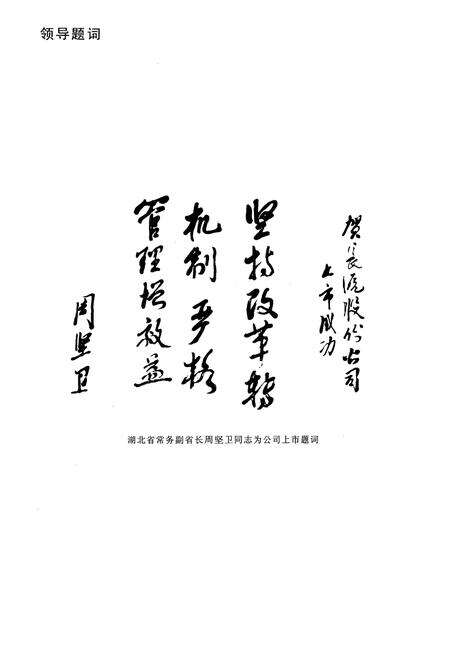 领导题词
贺长源股份公司
上市成功
坚持改革转
机制 严格
管理增效益
周坚卫
湖北省常务副省长周坚卫同志为公司上市题词